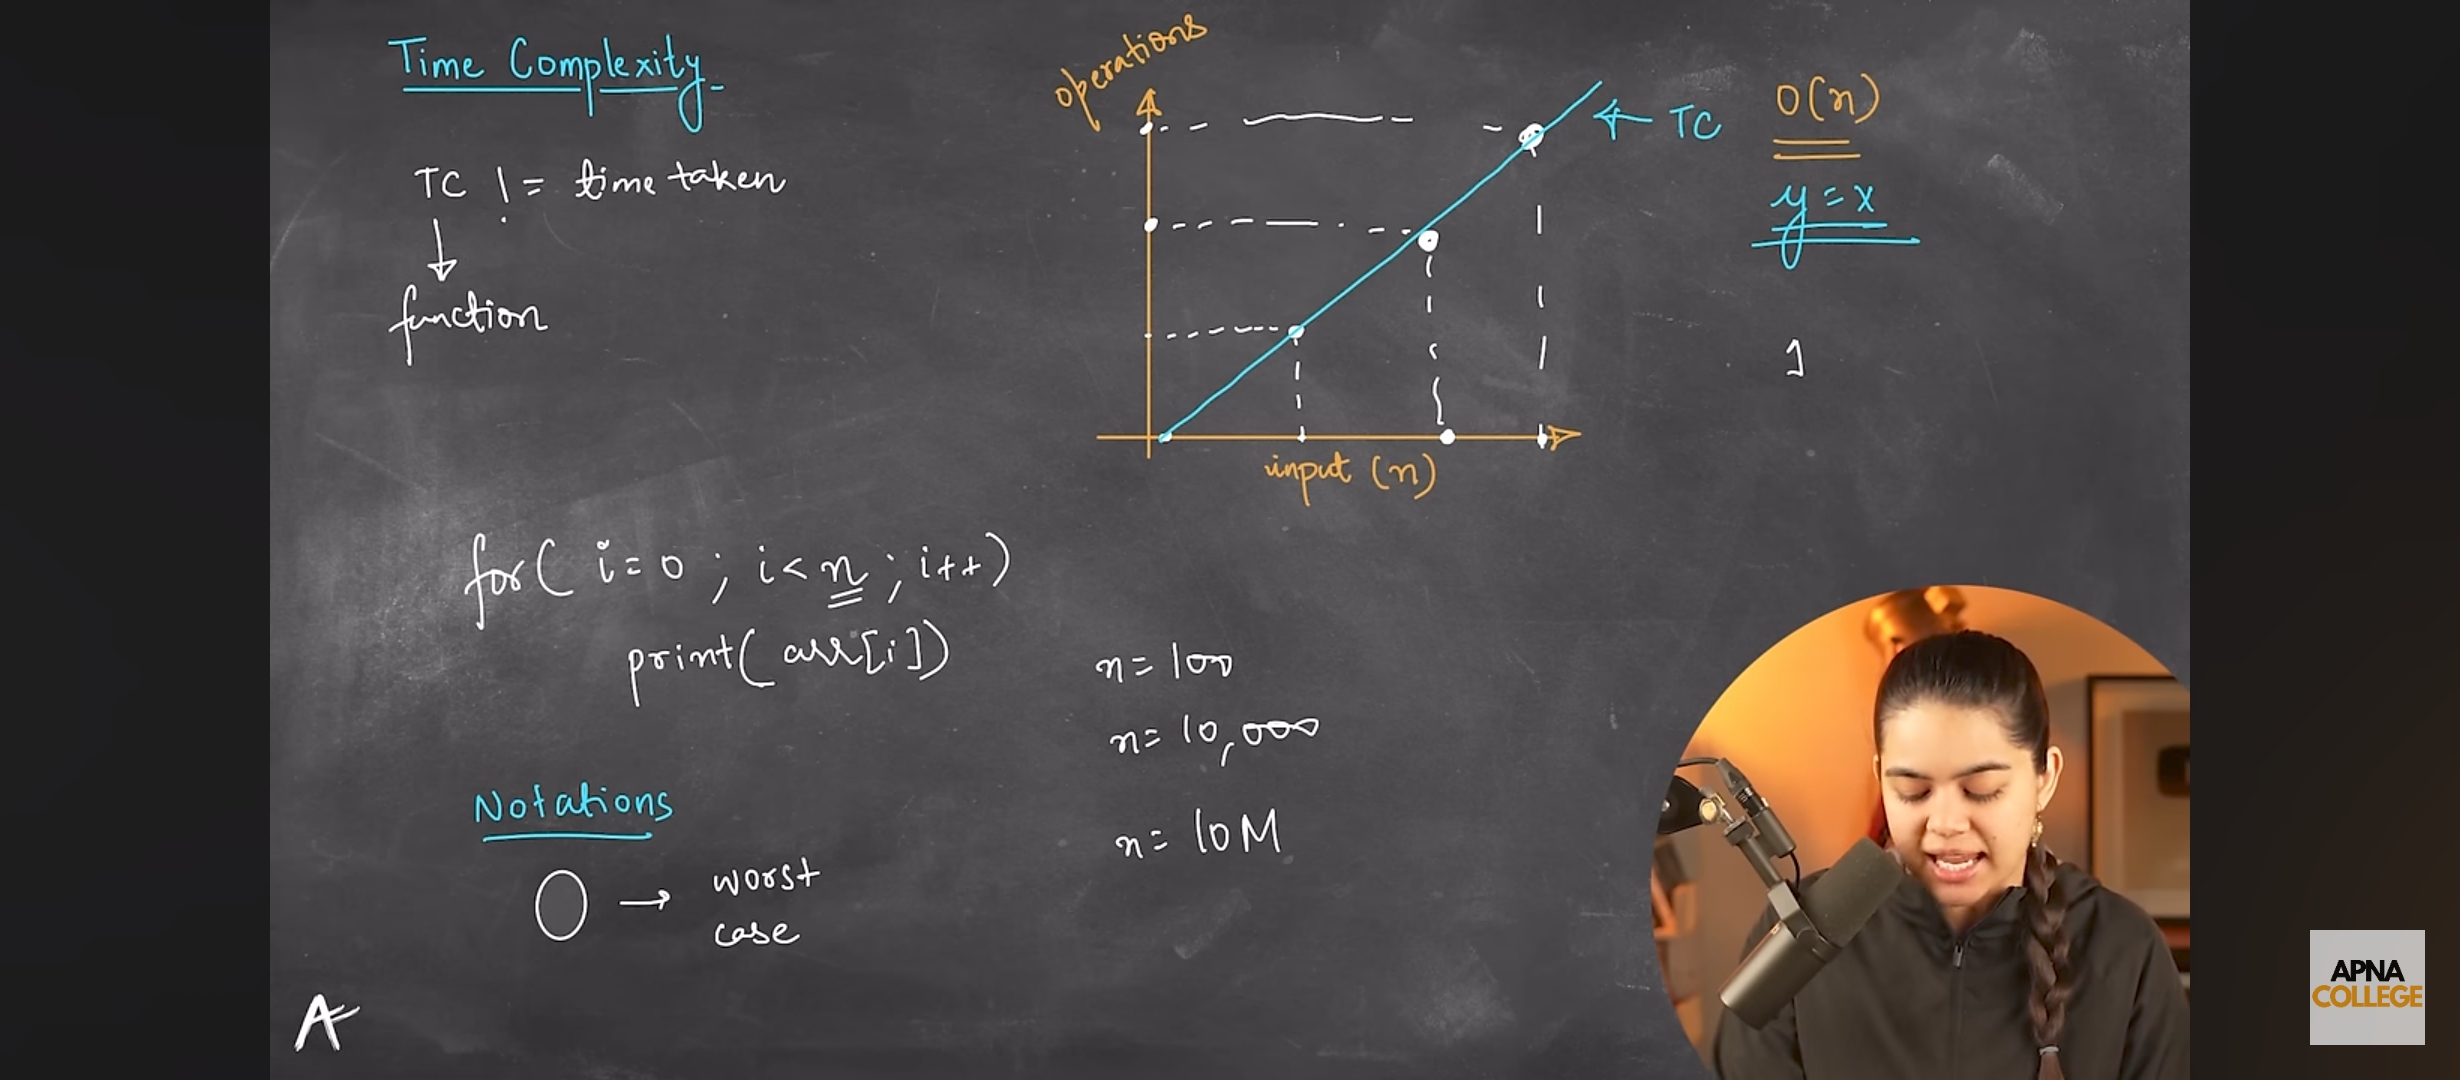 Time Complexity
TC != time taken
function
operations
TC
O(n)
y = x
1
input (n)
for( i=0 ; i<n ; i++)
print( arr[i])
n= 100
n= 10,000
n= 10M
Notations
O → worst
case
A
APNA
COLLEGE